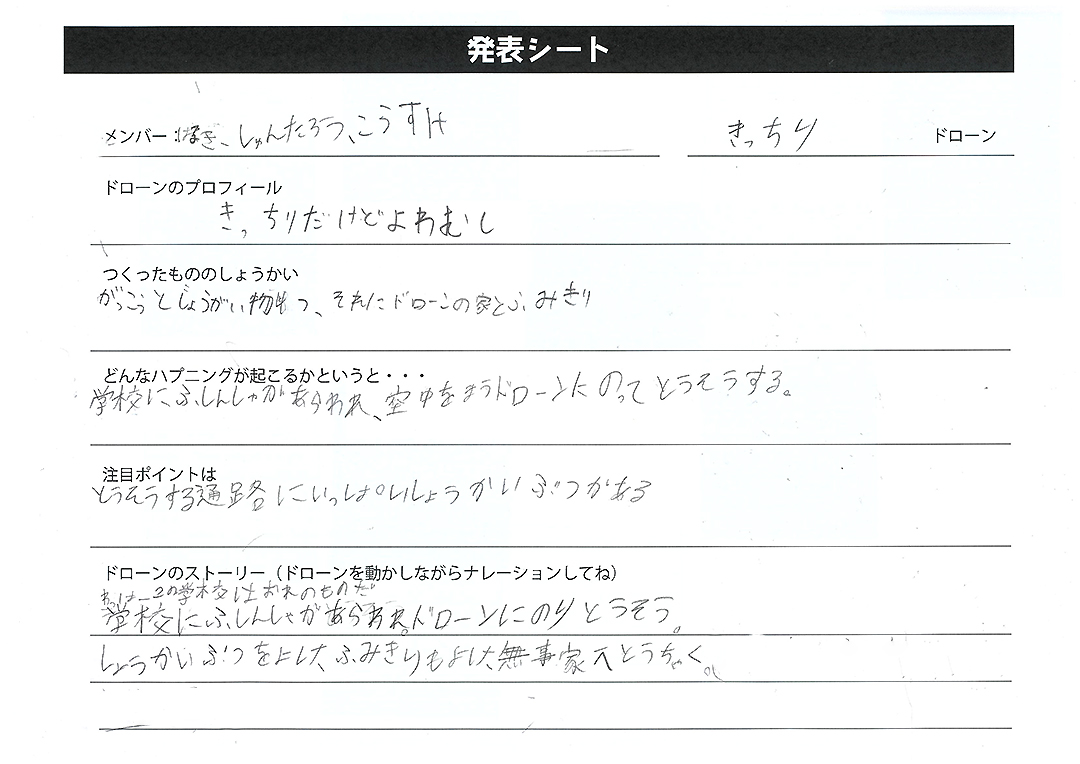 発表シート
メンバー：はるき、しゅんたろう、こうすけ
きっちり ドローン
ドローンのプロフィール
きっちりだけどよわむし
つくったもののしょうかい
がっこうとしょうがい物も つ、それにドローンの家とふみきり
どんなハプニングが起こるかというと・・・
学校に、ふしんしゃがあらわれ、空中をまうドローンにのってとうそうする。
注目ポイントは
とうそうする通路にいっぱいしょうがいぶつがある
ドローンのストーリー（ドローンを動かしながらナレーションしてね）
わっはーこの学校はおれのものだ
学校にふしんしゃがあらわれ。ドローンにのりとうそう。
しょうがいぶつをよけ、ふみきりもよけ、無事家へとうちゃく。